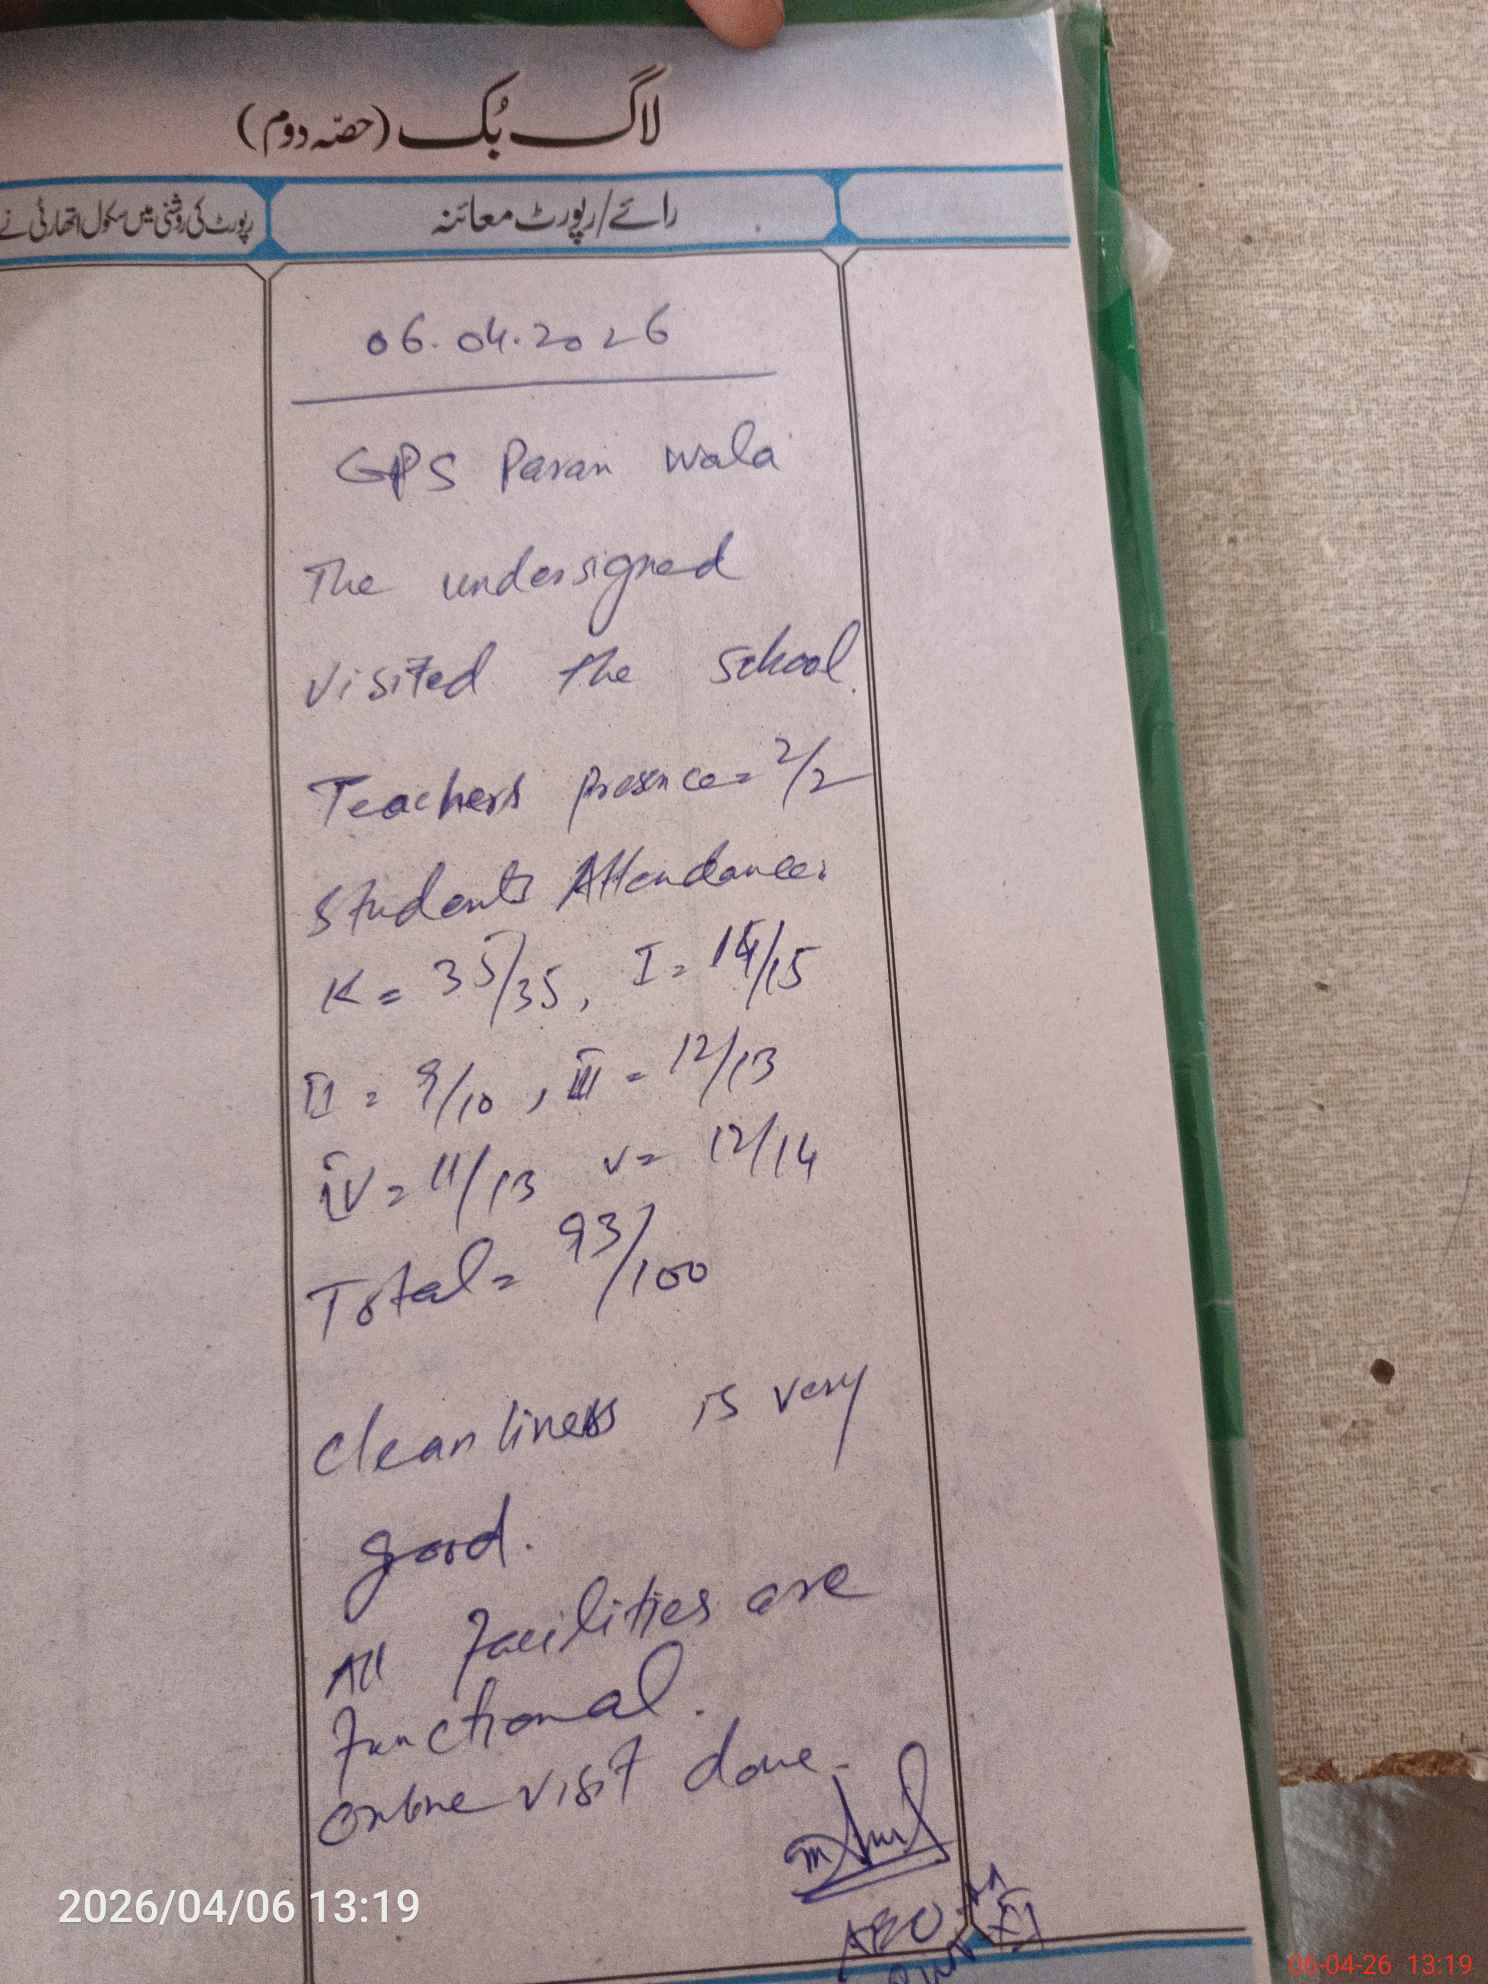 لاگ بُک (حصّہ دوم)
رائے/رپورٹ معائنہ
رپورٹ کی روشنی میں سکول اتھارٹی نے
06.04.2026
GPS Paran wala
The undersigned
visited the school.
Teachers presence = 2/2
Students Attendance:
K = 35/35, I = 14/15
II = 9/10, III = 12/13
IV = 11/13 V = 12/14
Total = 93/100
cleanliness is very
good.
All facilities are
functional.
online visit done.
AEO
2026/04/06 13:19
06-04-26 13:19